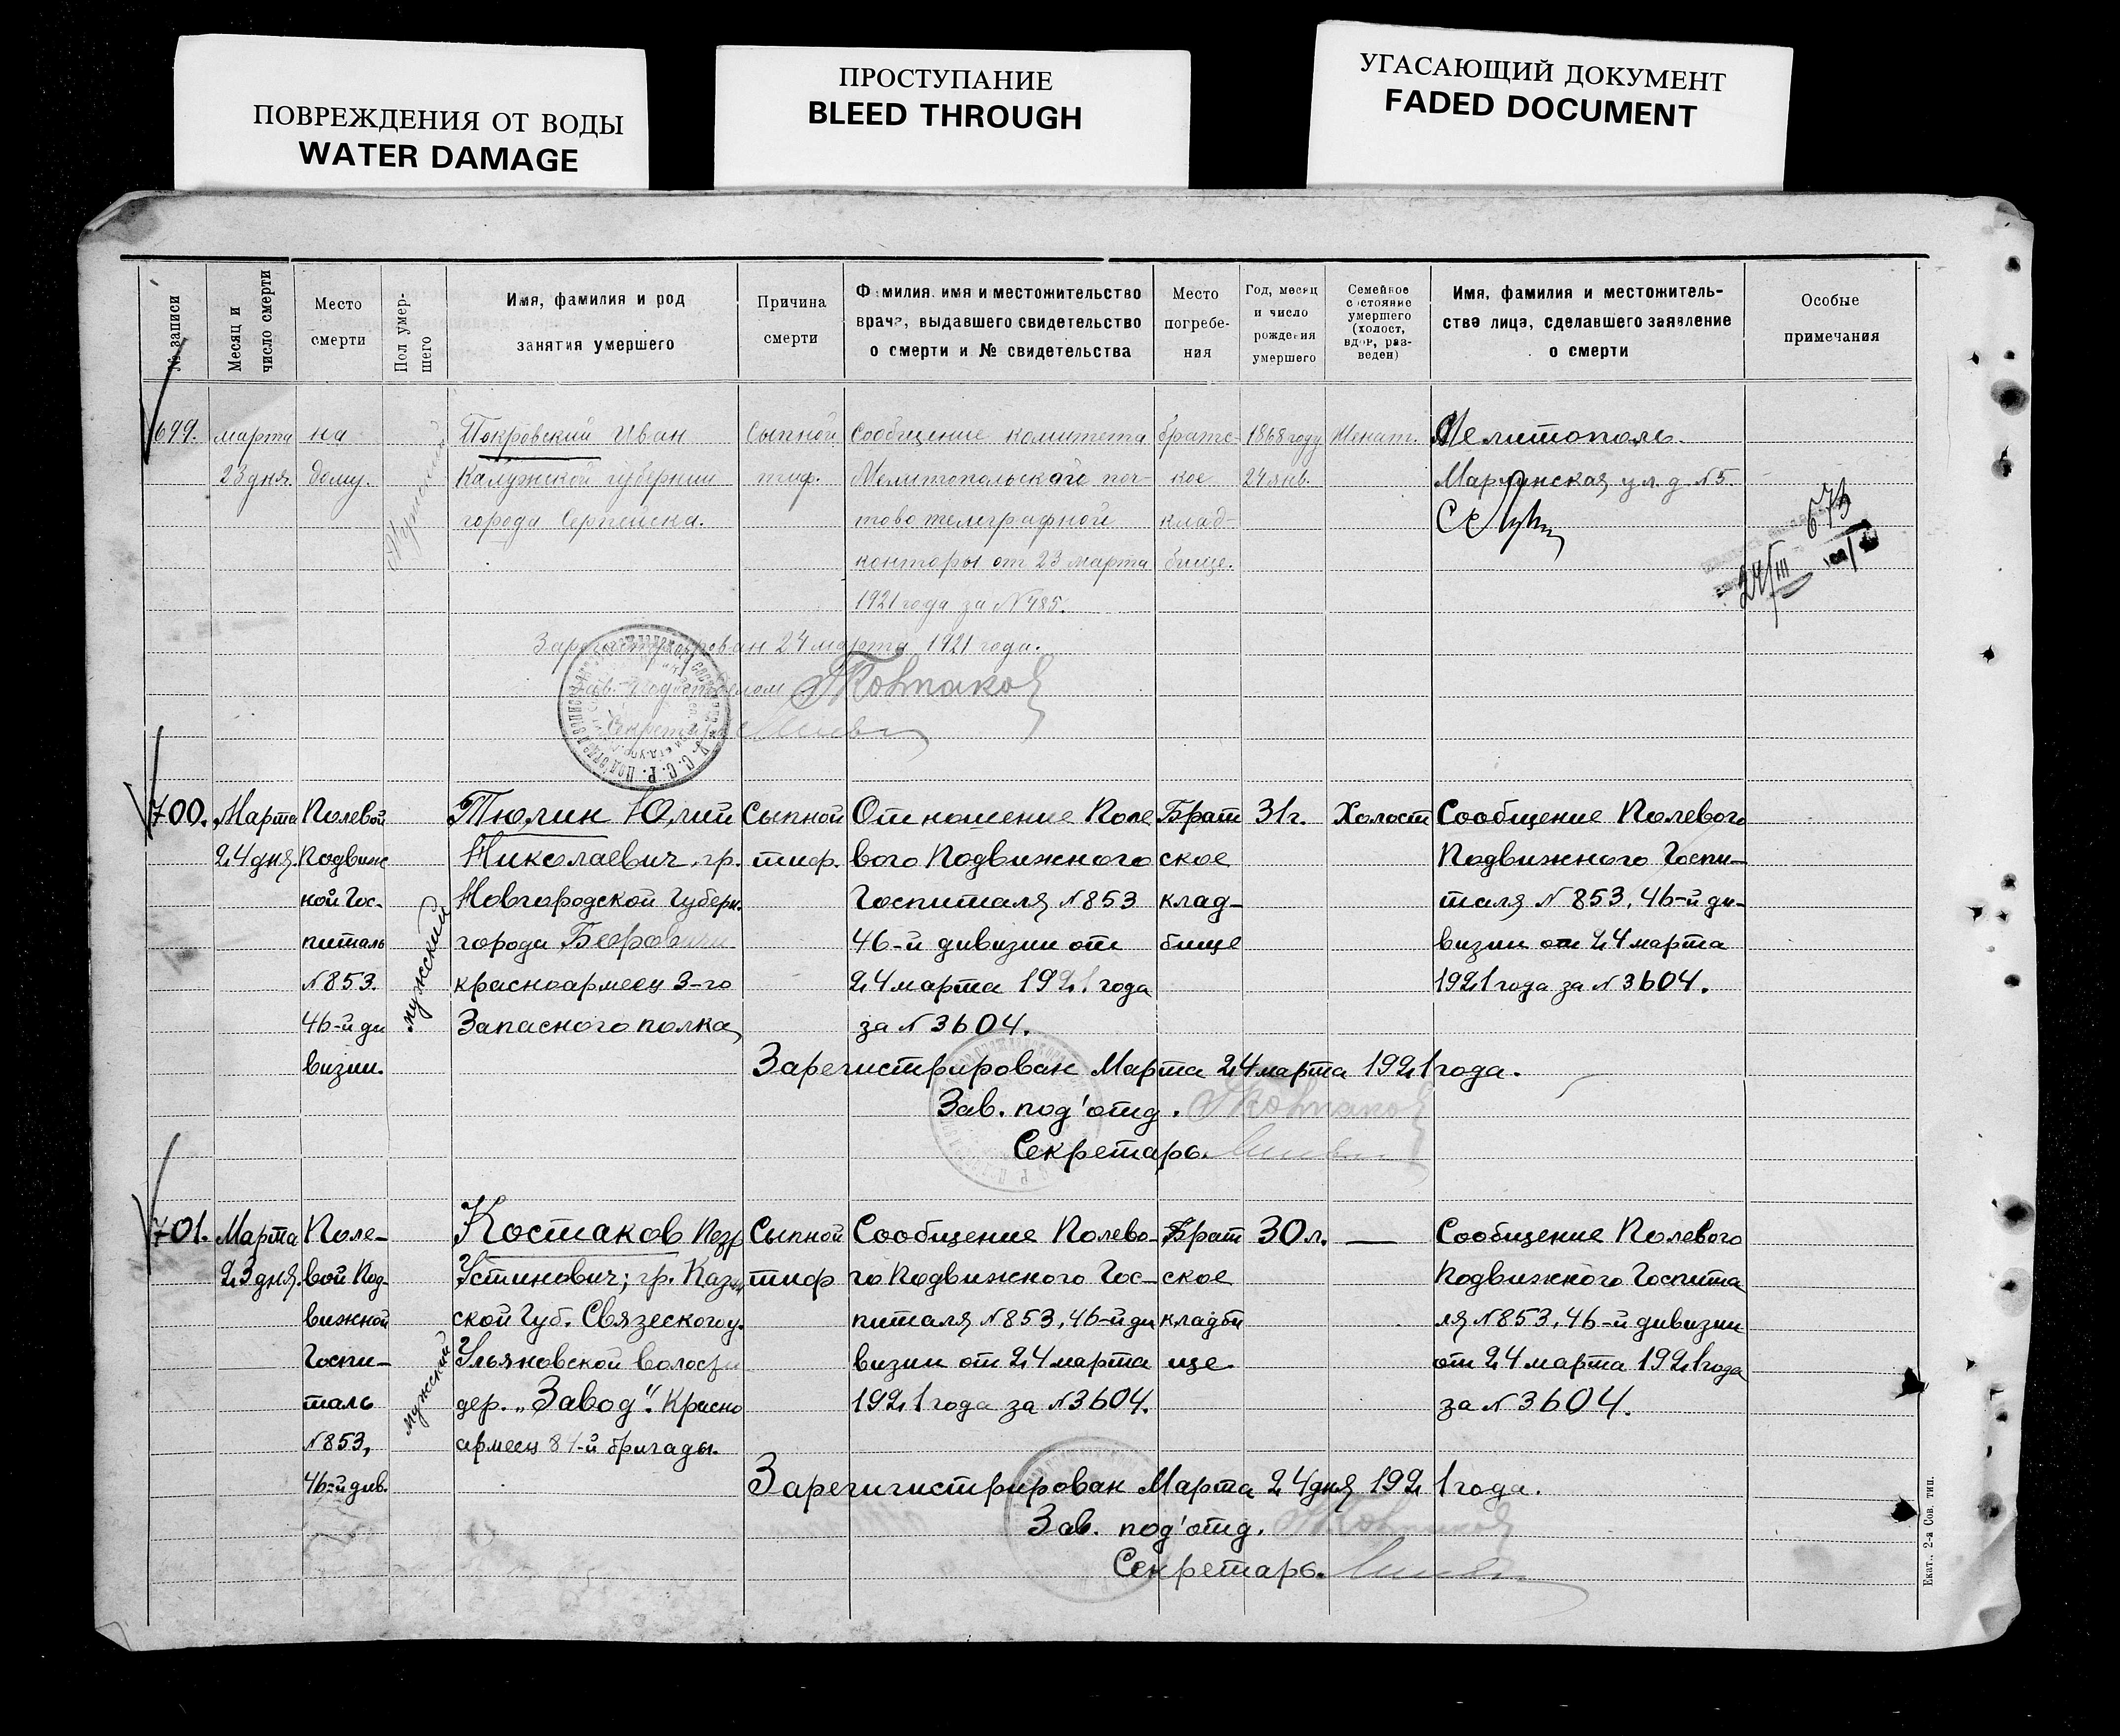 ПОВРЕЖДЕНИЯ ОТ ВОДЫ
WATER DAMAGE
ПРОСТУПАНИЕ
BLEED THROUGH
УГАСАЮЩИЙ ДОКУМЕНТ
FADED DOCUMENT
№ записи
Месяц и
число смерти
Место
смерти
Пол умер-
шего
Имя, фамилия и род
занятия умершего
Причина
смерти
Фамилия, имя и местожительство
врача, выдавшего свидетельство
о смерти и № свидетельства
Место
погребе-
ния
Год, месяц
и число
рождения
умершего
Семейное
состояние
умершего
(холост,
вдов, раз-
веден)
Имя, фамилия и местожитель-
ства лица, сделавшего заявление
о смерти
Особые
примечания
699.
марта
23 дня.
на
дому.
Мужской
Покровский Иван
Калужской губернии
города Серпейска.
Сыпной
тиф.
Сообщение комитета
Мелитопольского поч-
тово телеграфной
конторы от 23 марта
1921 года за № 485.
братс-
кое
клад-
бище.
1868 году
24 янв.
Женат.
Мелитополь.
Мариинская ул. д. №5.
673
24/III
Зарегистрирован 24 марта 1921 года.
Зав. Подотделом
Секретарь
700.
Марта
24 дня.
Полевой
Подвиж
ной Гос-
питаль
№853.
46-й ди
визии.
мужской
Тюлин Юлий
Николаевич, гр.
Новгородской Губерн.
города
красноармеец 3-го
Запасного полка
Сыпной
тиф.
Отношение Поле
вого Подвижного
Госпиталя №853
46-й дивизии от
24 марта 1921 года
за №3604.
Брат
ское
клад-
бище
31 г.
Холост
Сообщение Полевого
Подвижного Госпи-
таля №853, 46-й ди-
визии от 24 марта
1921 года за №3604.
Зарегистрирован Марта 24 марта 1921 года.
Зав. под'отд.
Секретарь.
701.
Марта
23 дня.
Поле-
вой Под-
вижной
Госпи-
таль
№853,
46-й див.
мужской
Костаков
Устинович; гр. Казан
ской Губ. Связеского у.
Ульяновской волости
дер. „Завод". Красно
армеец 81-й бригады.
Сыпной
тиф
Сообщение Полево-
го Подвижного Гос-
питаля №853, 46-й ди
визии от 24 марта
1921 года за №3604.
Брат
ское
кладби
ще.
30 л.
—
Сообщение Полевого
Подвижного Госпита
ля №853, 46-й дивизии
от 24 марта 1921 года
за №3604.
Зарегигистрирован Марта 24 дня 1921 года.
Зав. под'отд.
Секретарь.
Екат., 2-я Сов. тип.